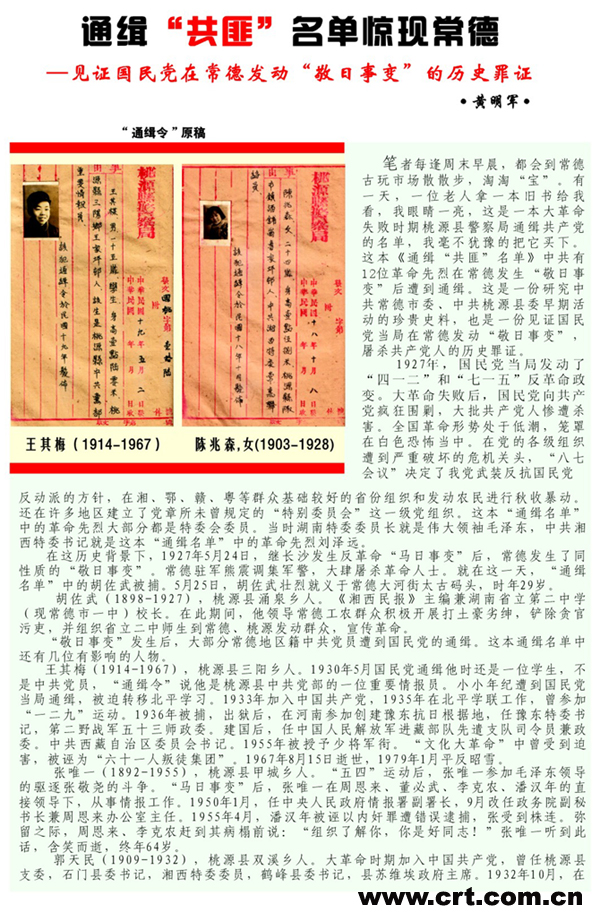 通缉“共匪”名单惊现常德
—见证国民党在常德发动“敬日事变”的历史罪证
·黄明军·
“通缉令”原稿
桃源縣警察局
桃源縣警察局
王其梅（1914-1967）
陈兆森,女(1903-1928)
笔者每逢周末早晨，都会到常德
古玩市场散散步，淘淘“宝”。有
一天，一位老人拿一本旧书给我
看，我眼睛一亮，这是一本大革命
失败时期桃源县警察局通缉共产党
的名单，我毫不犹豫的把它买下。
这本《通缉“共匪”名单》中共有
12位革命先烈在常德发生“敬日事
变”后遭到通缉。这是一份研究中
共常德市委、中共桃源县委早期活
动的珍贵史料，也是一份见证国民
党当局在常德发动“敬日事变”，
屠杀共产党人的历史罪证。
1927年，国民党当局发动了
“四一二”和“七一五”反革命政
变。大革命失败后，国民党向共产
党疯狂围剿，大批共产党人惨遭杀
害。全国革命形势处于低潮，笼罩
在白色恐怖当中。在党的各级组织
遭到严重破坏的危机关头，“八七
会议”决定了我党武装反抗国民党
反动派的方针，在湘、鄂、赣、粤等群众基础较好的省份组织和发动农民进行秋收暴动。
还在许多地区建立了党章所未曾规定的“特别委员会”这一级党组织。这本“通缉名单”
中的革命先烈大部分都是特委会委员。当时湖南特委委员长就是伟大领袖毛泽东，中共湘
西特委书记就是这本“通缉名单”中的革命先烈刘泽远。
在这历史背景下，1927年5月24日，继长沙发生反革命“马日事变”后，常德发生了同
性质的“敬日事变”。常德驻军熊震调集军警，大肆屠杀革命人士。就在这一天，“通缉
名单”中的胡佐武被捕。5月25日，胡佐武壮烈就义于常德大河街太古码头，时年29岁。
胡佐武（1898-1927），桃源县涌泉乡人。《湘西民报》主编兼湖南省立第二中学
（现常德市一中）校长。在此期间，他领导常德工农群众积极开展打土豪劣绅，铲除贪官
污吏，并组织省立二中师生到常德、桃源发动群众，宣传革命。
“敬日事变”发生后，大部分常德地区籍中共党员遭到国民党的通缉。这本通缉名单中
还有几位有影响的人物。
王其梅（1914-1967），桃源县三阳乡人。1930年5月国民党通缉他时还是一位学生，不
是中共党员，“通缉令”说他是桃源县中共党部的一位重要情报员。小小年纪遭到国民党
当局通缉，被迫转移北平学习。1933年加入中国共产党，1935年在北平学联工作，曾参加
“一二九”运动。1936年被捕，出狱后，在河南参加创建豫东抗日根据地，任豫东特委书
记，第二野战军五十三师政委。建国后，任中国人民解放军进藏部队先遣支队司令员兼政
委。中共西藏自治区委员会书记。1955年被授予少将军衔。“文化大革命”中曾受到迫
害，被诬为“六十一人叛徒集团”。1967年8月15日逝世，1979年1月平反昭雪。
张唯一（1892-1955），桃源县甲城乡人。“五四”运动后，张唯一参加毛泽东领导
的驱逐张敬尧的斗争。“马日事变”后，张唯一在周恩来、董必武、李克农、潘汉年的直
接领导下，从事情报工作。1950年1月，任中央人民政府情报署副署长，9月改任政务院副秘
书长兼周恩来办公室主任。1955年4月，潘汉年被诬以内奸罪遭错误逮捕，张受到株连。弥
留之际，周恩来、李克农赶到其病榻前说：“组织了解你，你是好同志！”张唯一听到此
话，含笑而逝，终年64岁。
郭天民（1909-1932），桃源县双溪乡人。大革命时期加入中国共产党，曾任桃源县
支委，石门县委书记，湘西特委委员，鹤峰县委书记，县苏维埃政府主席。1932年10月，在
www.crt.com.cn